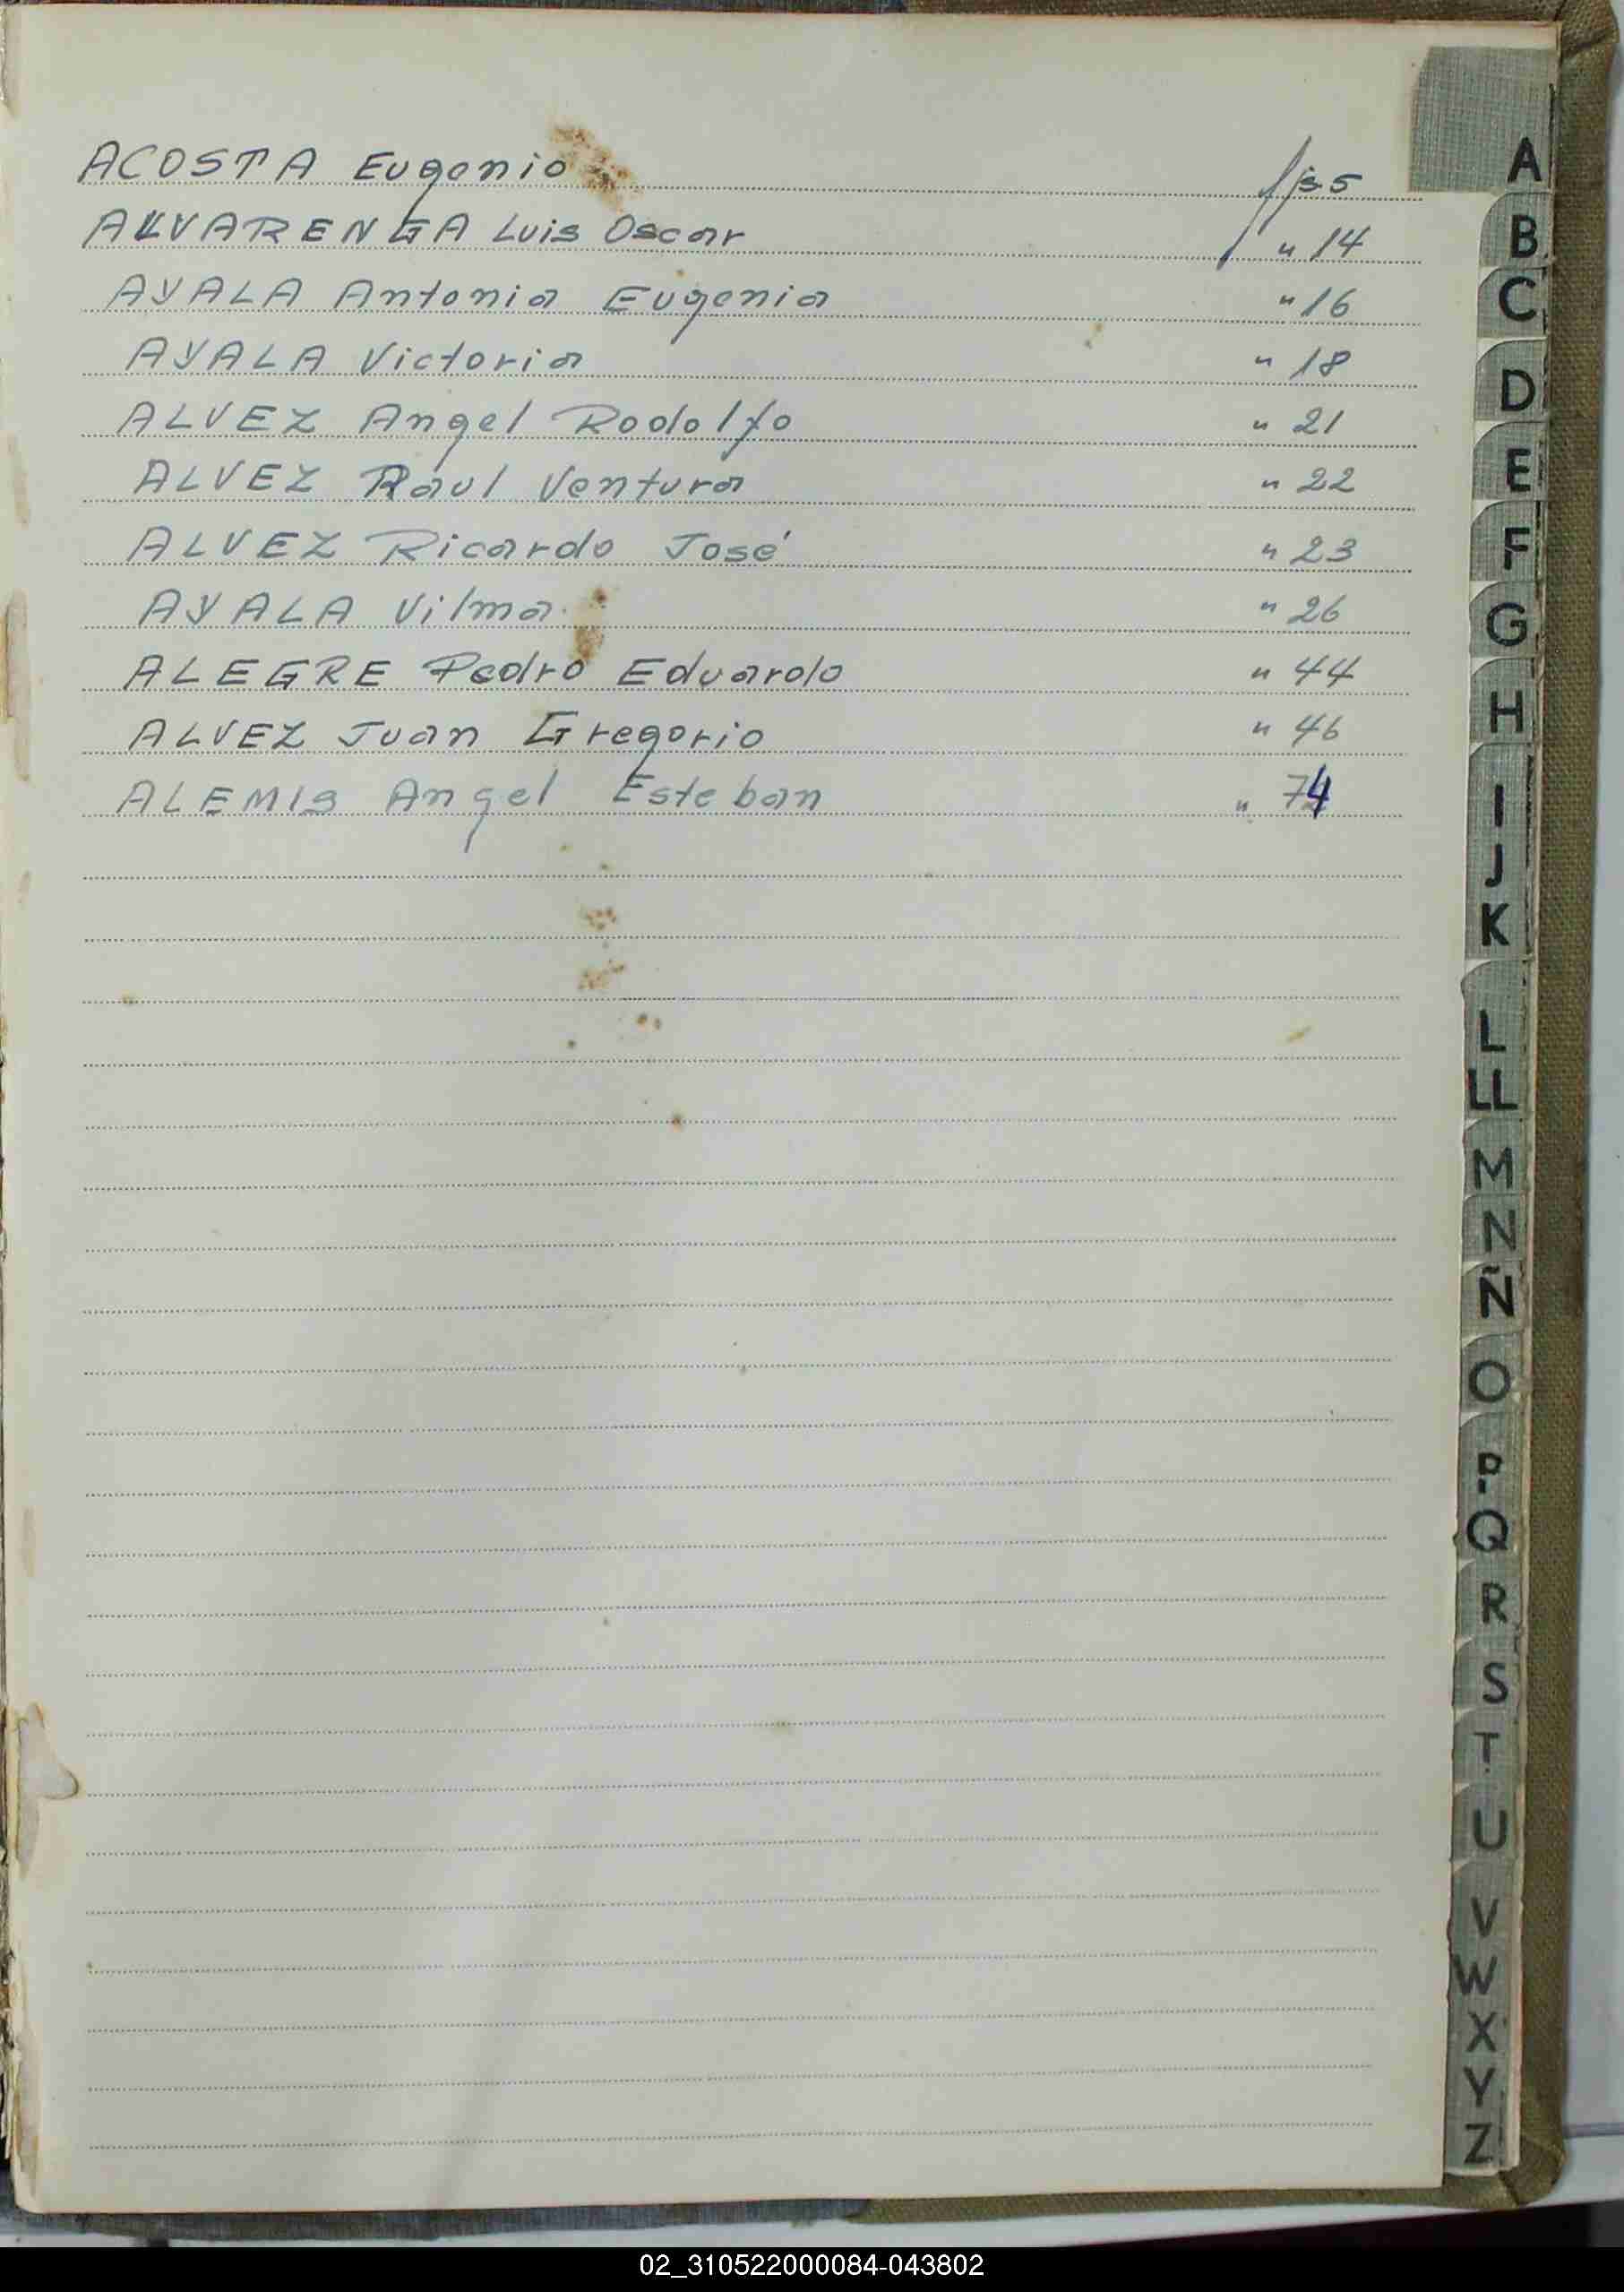 ACOSTA Eugenio fjs 5
ALVARENGA Luis Oscar " 14
AYALA Antonia Eugenia " 16
AYALA Victoria " 18
ALVEZ Angel Rodolfo " 21
ALVEZ Raul Ventura " 22
ALVEZ Ricardo José " 23
AYALA Vilma " 26
ALEGRE Pedro Eduardo " 44
ALVEZ Juan Gregorio " 46
ALEMIS Angel Esteban " 74
A
B
C
D
E
F
G
H
I
J
K
L
LL
M
N
Ñ
O
P
Q
R
S
T
U
V
W
X
Y
Z
02_310522000084-043802